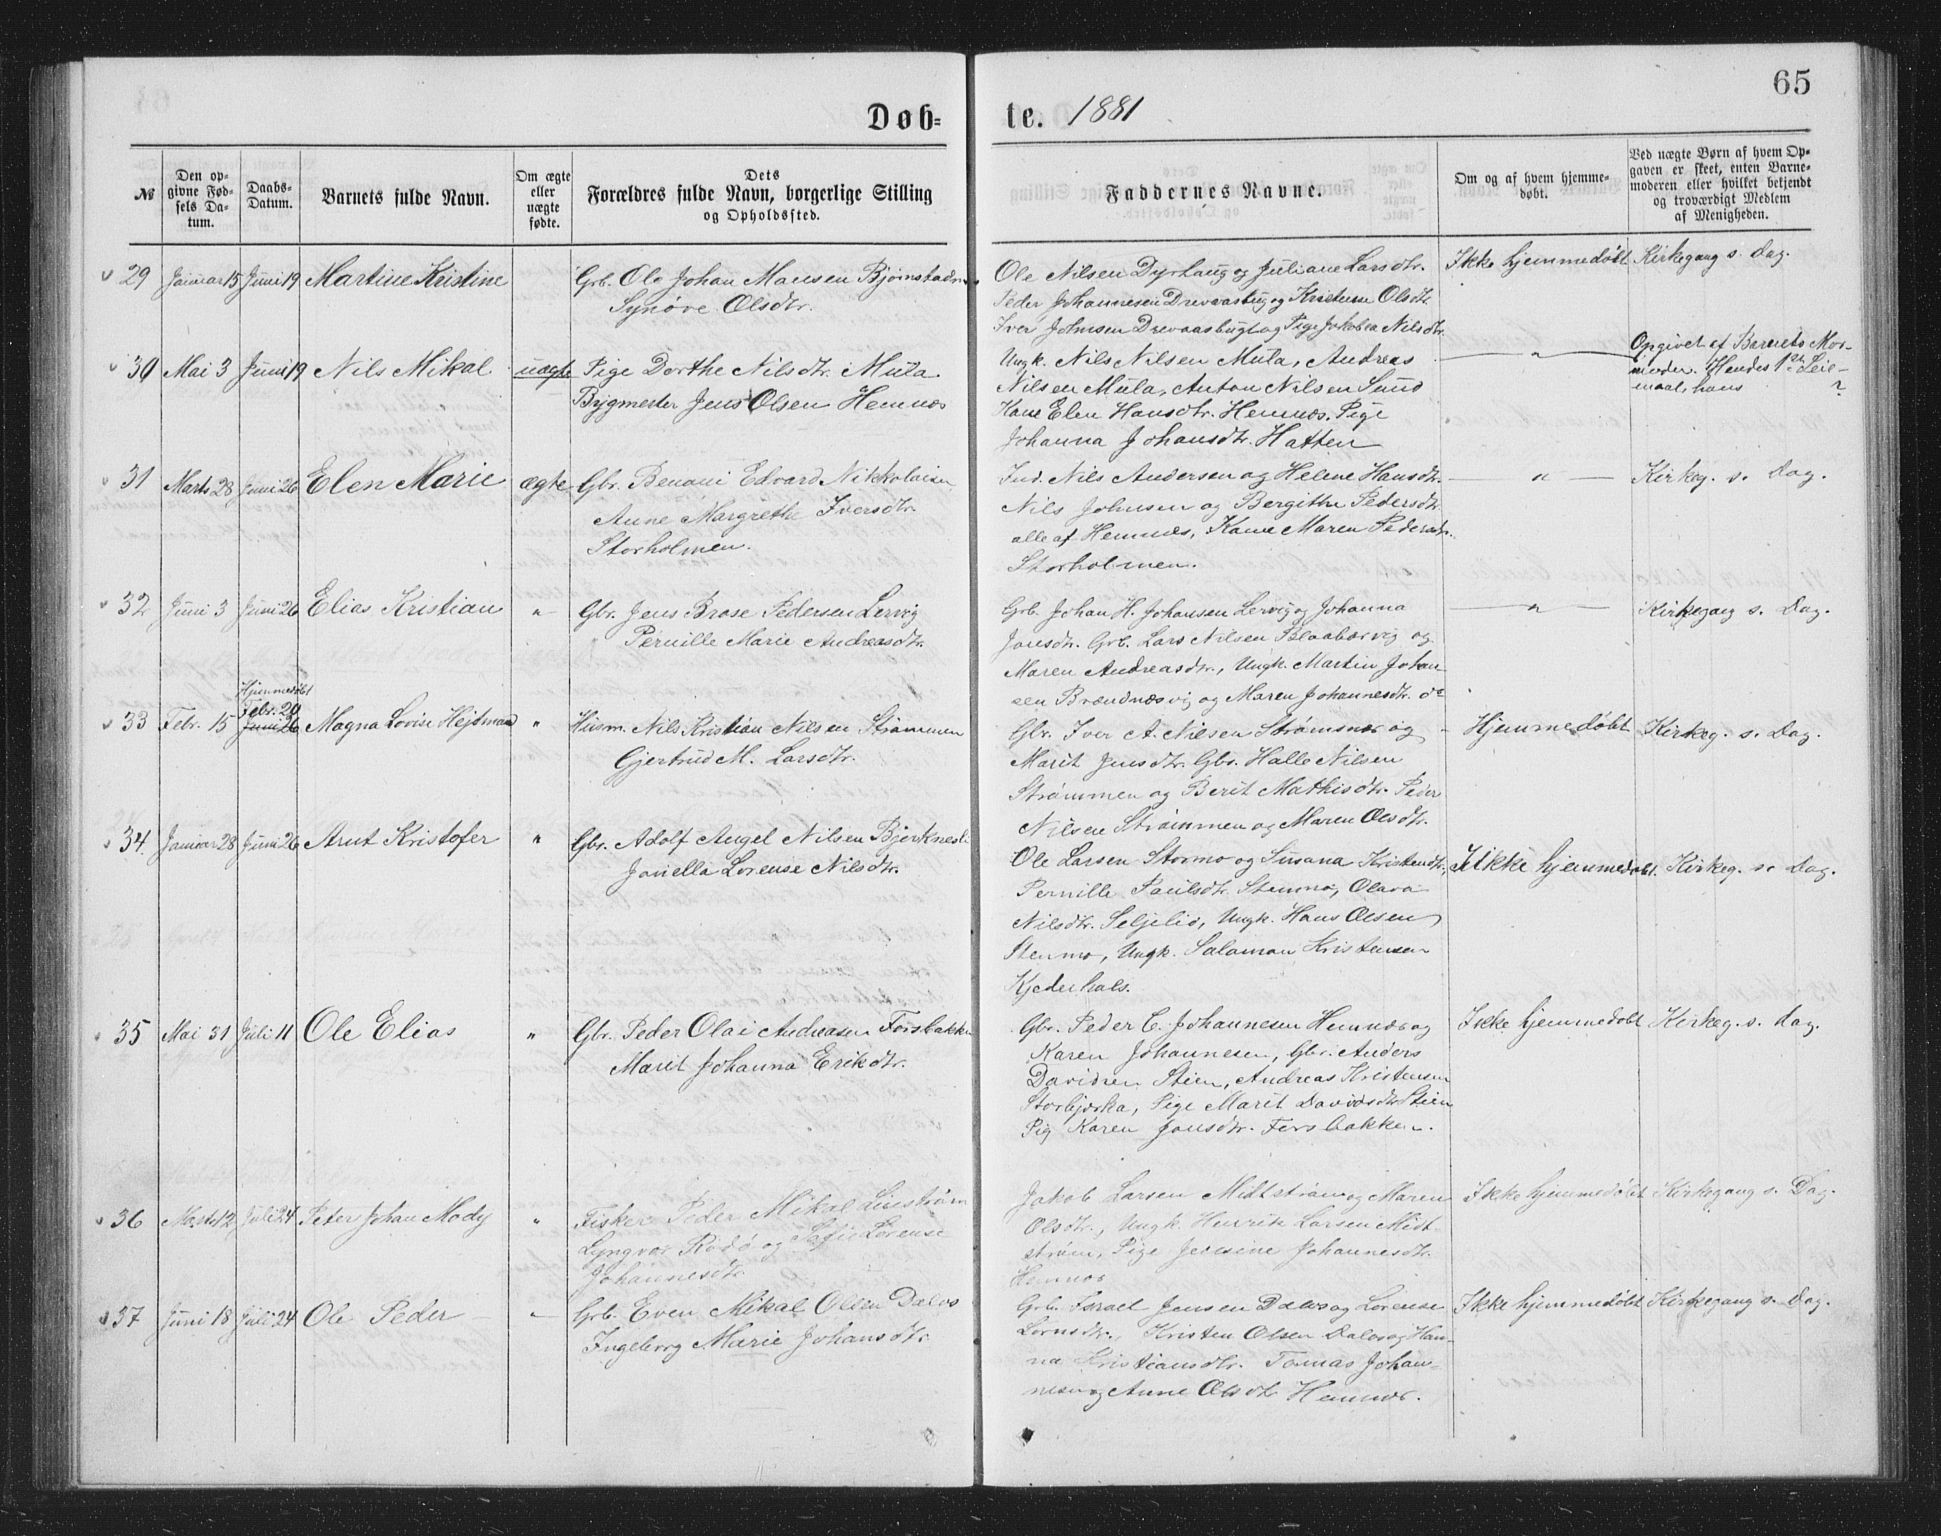 65
Døb= te. 1881
№
Den opgivne Fødsels Datum.
Daabs-Datum.
Barnets fulde Navn.
Om ægte eller uægte fødte.
Dets Forældres fulde Navn, borgerlige Stilling og Opholdssted.
Faddernes Navne.
Om og af hvem hjemmedøbt.
Ved uægte Børn af hvem Opgaven er skeet, enten Barnemoderen eller hvilket bekjendt og troværdigt Medlem af Menigheden.
29 Januar 15 Juni 19 Martine Kristine
Grb. Ole Johan Hansen
Synøve Olsdtr.
Ole Nilsen Dyrhaug og Juliane Larsdtr.
Peder Johannesen og Olsdtr.
Iver Johnsen og Pige Jakobea Nilsdtr.
Ikke hjemmedøbt Kirkegang s. Dag.
30 Mai 3 Juni 19 Nils Mikal uægte
Pige Dorthe Nilsdtr. Mula
Bygmester Jens Olsen Hemnæs
Ungk. Nils Nilsen Mula, Andreas
Nilsen Mula, Anton Nilsen Sund
Kone Elen Hansdtr. Hemnæs. Pige
Johanna Johansdtr. Hatten
— " —
Opgivet af Barnets Mor-
moder. Hendes 1ste Leie-
maal, hans ?
31 Marts 28 Juni 26 Elen Marie ægte
Gbr. Benoni Edvard Nikkolaisen
Anne Margrethe Iversdtr.
Storholmen.
Ind. Nils Andersen og Helene Hansdtr.
Nils Johnsen og Bergithe Pedersdtr.
alle af Hemnæs, Kone Maren Pedersdtr.
Storholmen.
— " — Kirkeg. s. Dag.
32 Juni 3 Juni 26 Elias Kristian "
Gbr. Jens Brose Pedersen Lervig
Pernille Marie Andreasdtr.
Grb. Johan H. Johansen Lervig og Johanna
Jonsdtr. Grb. Lars Nilsen Blaabærvig og
Maren Andreasdtr., Ungk. Martin Johan-
sen Brændnæsvig og Maren Johannesdtr. do
— " — Kirkegang s. Dag.
Hjemmedøbt
Febr. 20
33 Febr. 15 Juni 26 Magna Lovise Hejdman "
Husm. Nils Kristian Nilsen Strømmen
Gjertrud M. Larsdtr.
Gbr. Iver A. Nilsen Strømsnes og
Marit Jensdtr. Gbr. Halle Nilsen
Strømmen og Berit Mathisdtr. Peder
Nilsen Strømmen og Maren Olsdtr.
Hjemmedøbt Kirkeg. s. Dag.
34. Januar 28 Juni 26 Arnt Kristofer "
Gbr. Adolf Angel Nilsen Bjerknesli
Jonella Lorense Nilsdtr.
Ole Larsen Stormo og Susana Kristensdtr.,
Pernille Paulsdtr. Stenmo, Olava
Nilsdtr. Seljelid, Ungk. Hans Olsen
Stenmo, Ungk. Salamon Kristensen
Kjederhals.
Ikke hjemmedøbt. Kirkeg. s. Dag.
35 Mai 31 Juli 11 Ole Elias "
Gbr. Peder Olai Andreasen Forsbakken
Marit Johanna Erikdtr.
Gbr. Peder C. Johannesen Hemnæs og
Karen Johannesen, Gbr. Anders
Davidsen Stien, Andreas Kristensen
Storbjerka, Pige Marit Davidsdtr. Stien
Pig Karen Jonsdtr. Forsbakken.
Ikke hjemmedøbt Kirkeg. s. Dag.
36 Marts 12 Juli 24 Peter Johan Mody "
Fisker Peder Mikal
Lyngvær Rødø og Sofie Lorense
Johannesdtr.
Jakob Larsen Midtstrøm og Maren
Olsdtr., Ungk. Henrik Larsen Midt-
strøm, Pige Jensine Johannesdtr.
Hemnæs
Ikke hjemmedøbt Kirkegang s. Dag.
37 Juni 18 Juli 24 Ole Peder "
Grb. Even Mikal Olsen Dalos
Ingeborg Marie Johansdtr.
Grb. Israel Jensen Dalos og Lorense
Kristen Olsen Dalos og Han-
na Kristiansdtr. Tomas Johan-
nesen og Anne Olsdtr. Hemnæs.
Ikke hjemmedøbt Kirkegang s. Dag.